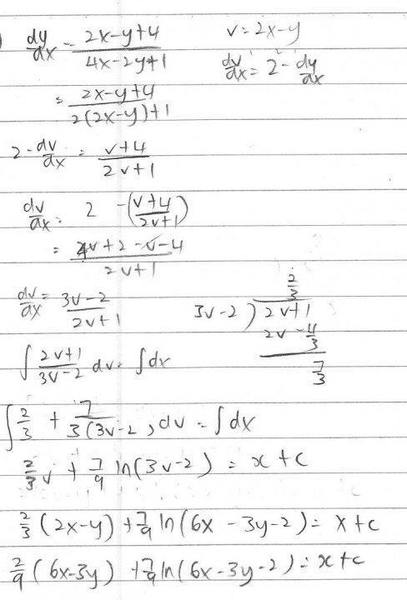 dy/dx = (2x-y+4)/(4x-2y+1)    v=2x-y
dv/dx = 2-dy/dx
= (2x-y+4)/(2(2x-y)+1)
2-dv/dx = (v+4)/(2v+1)
dv/dx = 2 -((v+4)/(2v+1))
= (4v+2-v-4)/(2v+1)
dv/dx = (3v-2)/(2v+1)
2/3
3v-2 ) 2v+1
2v -4/3
7/3
∫ (2v+1)/(3v-2) dv = ∫dx
∫ 2/3 + 7/(3(3v-2)) dv = ∫dx
2/3 v + 7/9 ln(3v-2) = x+c
2/3 (2x-y) + 7/9 ln(6x-3y-2) = x+c
2/9 (6x-3y) + 7/9 ln(6x-3y-2) = x+c